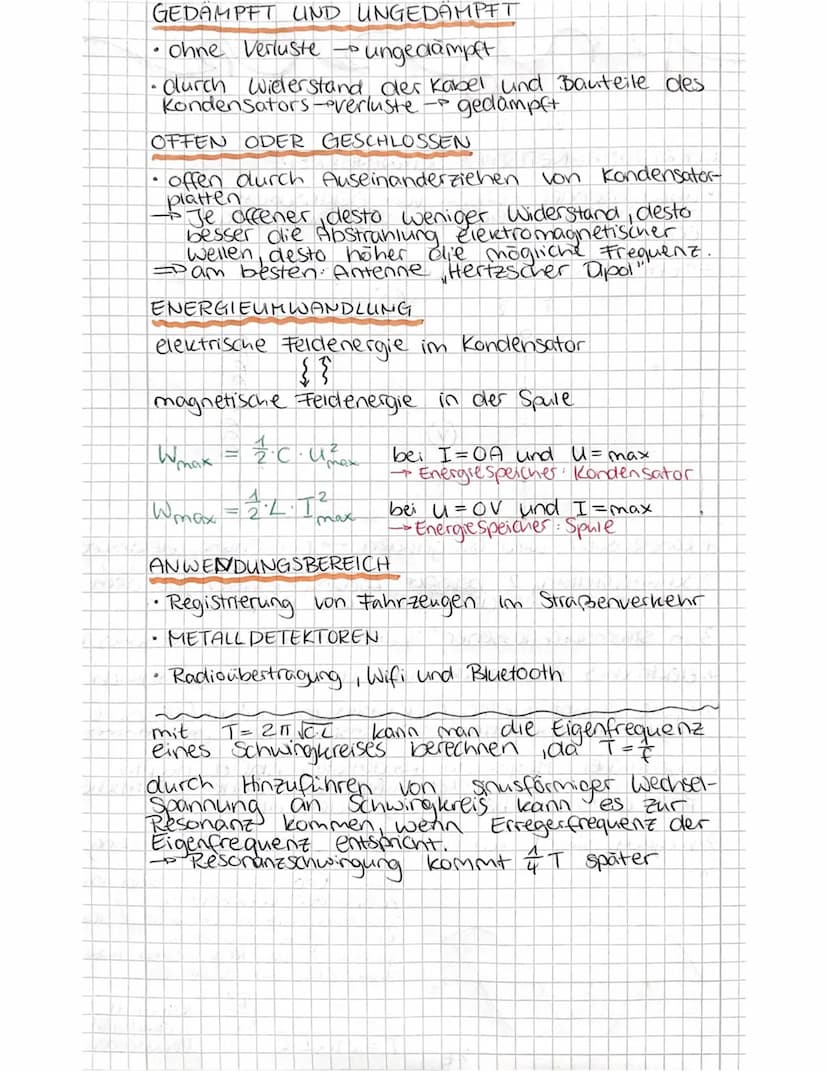 GEDÄMPFT UND UNGEDÄMPFT
• ohne Verluste → ungedämpft
• durch Widerstand der Kabel und Bauteile des
Kondensators → verluste → gedämpft
OFFEN ODER GESCHLOSSEN
• offen durch Auseinanderziehen von Kondensator-
platten
→ Je offener, desto weniger Widerstand, desto
besser die Abstrahlung elektromagnetischer
wellen, desto höher die mögliche Frequenz.
⇒ am besten: Antenne „Hertzscher Dipol"
ENERGIEUMWANDLUNG
elektrische Feldenergie im Kondensator
magnetische Feldenergie in der Spule
Wmax = 1/2 · C · U²max bei I=0A und U=max
→ Energiespeicher: Kondensator
Wmax = 1/2 · L · I²max bei U=0V und I=max
→ Energiespeicher: Spule
ANWENDUNGSBEREICH
• Registrierung von Fahrzeugen im Straßenverkehr
• METALLDETEKTOREN
• Radioübertragung, Wifi und Bluetooth
mit T=2π√CL kann man die Eigenfrequenz
eines Schwingkreises berechnen, da T=1/f
durch Hinzuführen von sinusförmiger Wechsel-
Spannung an Schwingkreis kann es zur
Resonanz kommen, wenn Erregerfrequenz der
Eigenfrequenz entspricht.
→ Resonanzschwingung kommt 1/4 T später